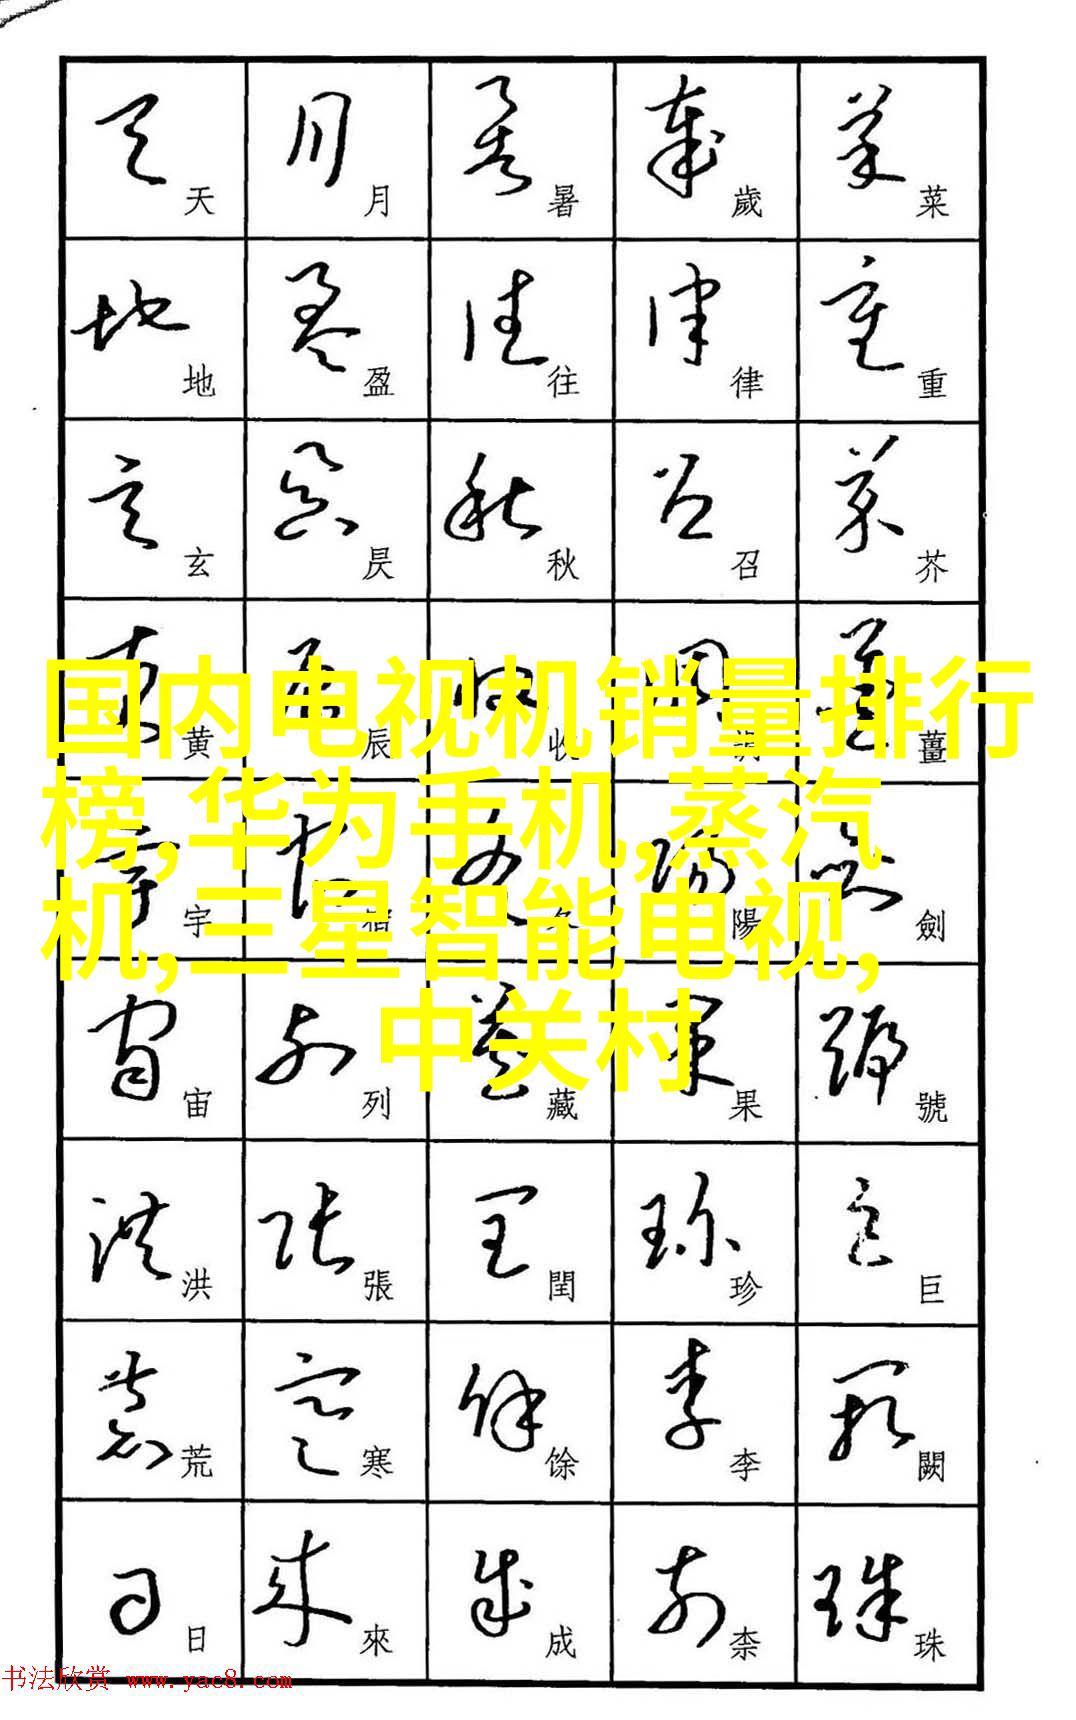 天地玄黄宇宙洪荒日
月盈昃辰宿列張寒來
暑往秋收冬藏閏馀成
歲律召陽果珍李柰
菜重芥薑劍號巨闕珠
国内电视机销量排行
榜,华为手机,蒸汽
机,三星智能电视,
中关村
书法欣赏 www.yac8.com